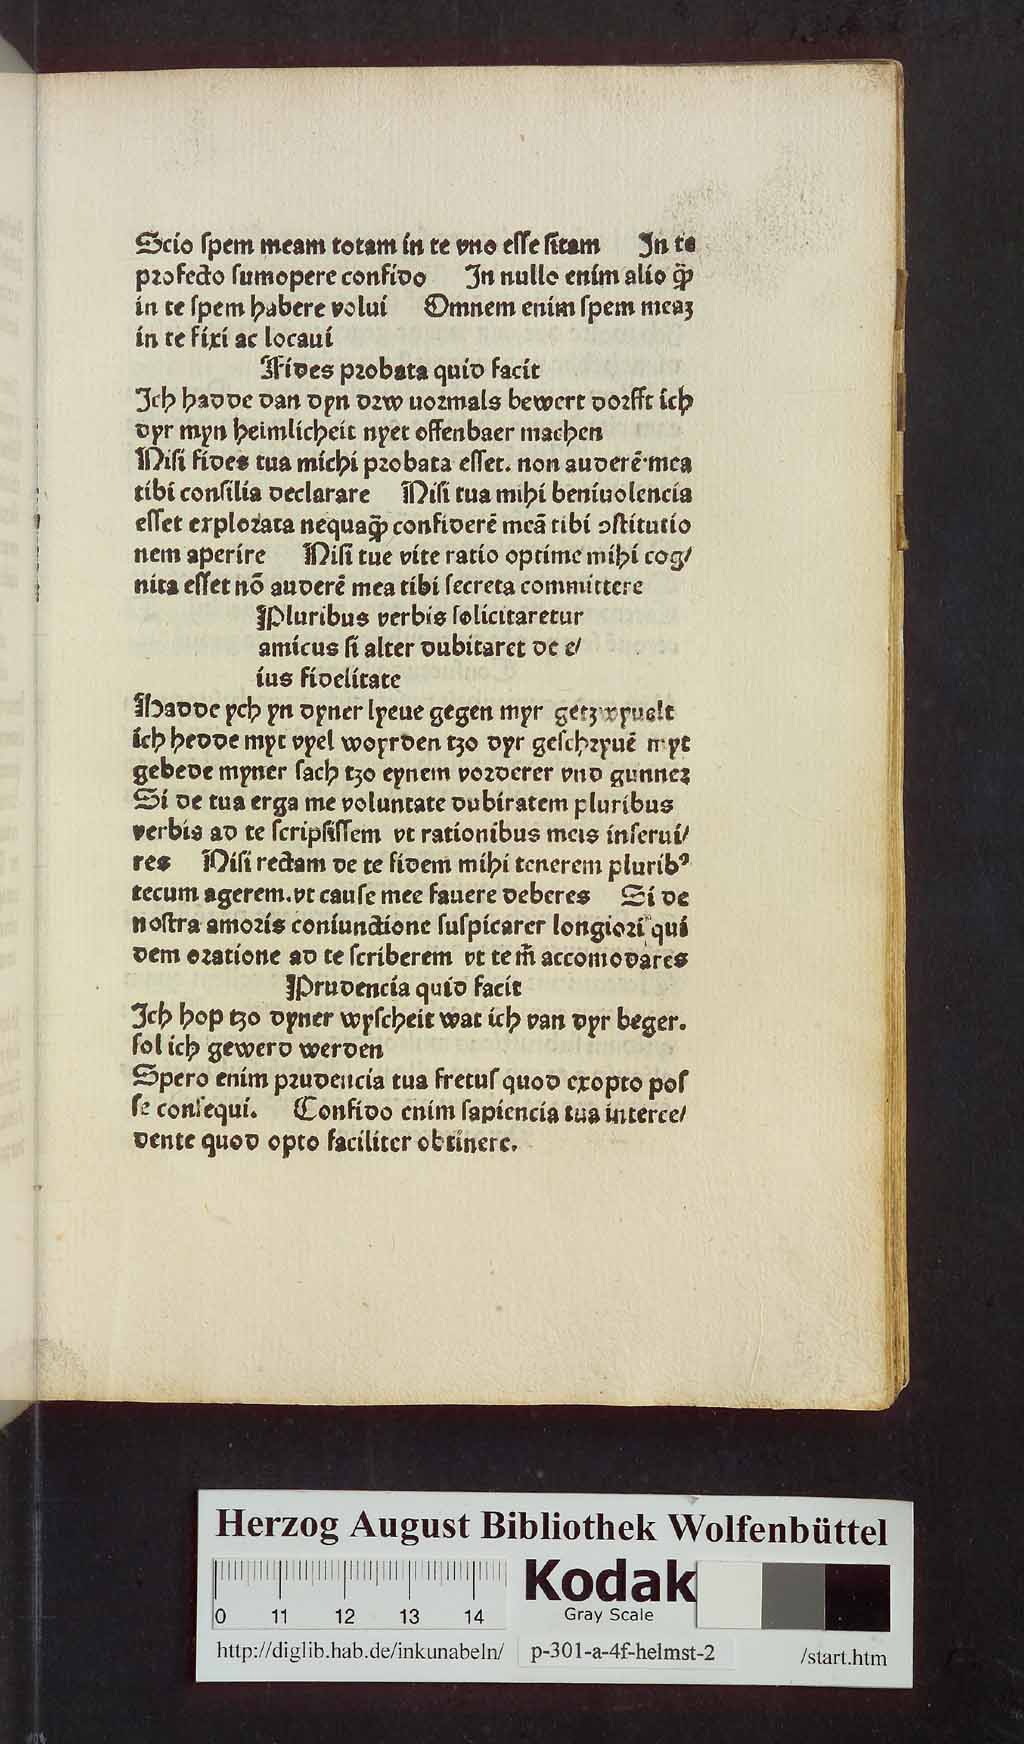 Scio ſpem meam totam in te vno eſſe ſitam In te
ꝓfecto ſumopere confido In nullo enim alio ꝙ̃
in te ſpem habere volui Omnem enim ſpem meaꝫ
in te fixi ac locaui
Fides probata quid facit
Ich hadde van dyn drw uormals bewert dorfft ich
dyr myn heimlicheit nyet offenbaer machen
Niſi fides tua michi probata eſſet. non auderē mea
tibi conſilia declarare Niſi tua mihi beniuolencia
eſſet explorata nequaꝙ̃ confiderē meā tibi ↄſtitutio
nem aperire Niſi tue vite ratio optime mihi cog/
nita eſſet nō auderē mea tibi ſecreta committere
Pluribus verbis ſolicitaretur
amicus ſi alter dubitaret de e/
ius fidelitate
Hadde ych yn dyner lyeue gegen myr getzwyuelt
ich hedde myt vyel woyrden tzo dyr geſchryuē myt
gebede myner ſach tzo eynem vorderer vnd gunneꝛ
Si de tua erga me voluntate dubiratem pluribus
verbis ad te ſcripſiſſem vt rationibus meis inſerui/
res Niſi rectam de te fidem mihi tenerem pluribꝰ
tecum agerem.vt cauſe mee fauere deberes Si de
noſtra amoris coniunctione ſuſpicarer longiori qui
dem oratione ad te ſcriberem vt te m̄ accomodares
Prudencia quid facit
Ich hop tzo dyner wyſcheit wat ich van dyr beger.
ſol ich gewerd werden
Spero enim prudencia tua fretuſ quod exopto poſ
ſe conſequi. Confido enim ſapiencia tua interce/
dente quod opto faciliter obtinere.
Herzog August Bibliothek Wolfenbüttel
0 11 12 13 14
Kodak
Gray Scale
http://diglib.hab.de/inkunabeln/ p-301-a-4f-helmst-2 /start.htm